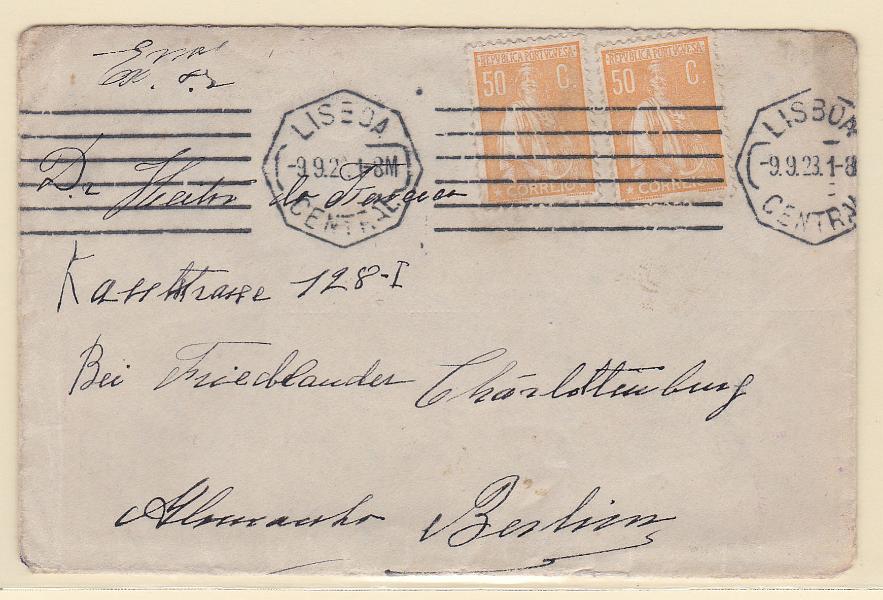 Exmo
Sr. Dr
REPUBLICA PORTUGUESA
50 C.
CORREIO
REPUBLICA PORTUGUESA
50 C.
CORREIO
LISBOA
-9.9.23.1-8M
CENTRAL
LISBOA
-9.9.23.1-8
CENTRA
Dr Heitor da Fonseca
Kantstrasse 128-I
Bei Friedlander Charlottenburg
Alemanha Berlim